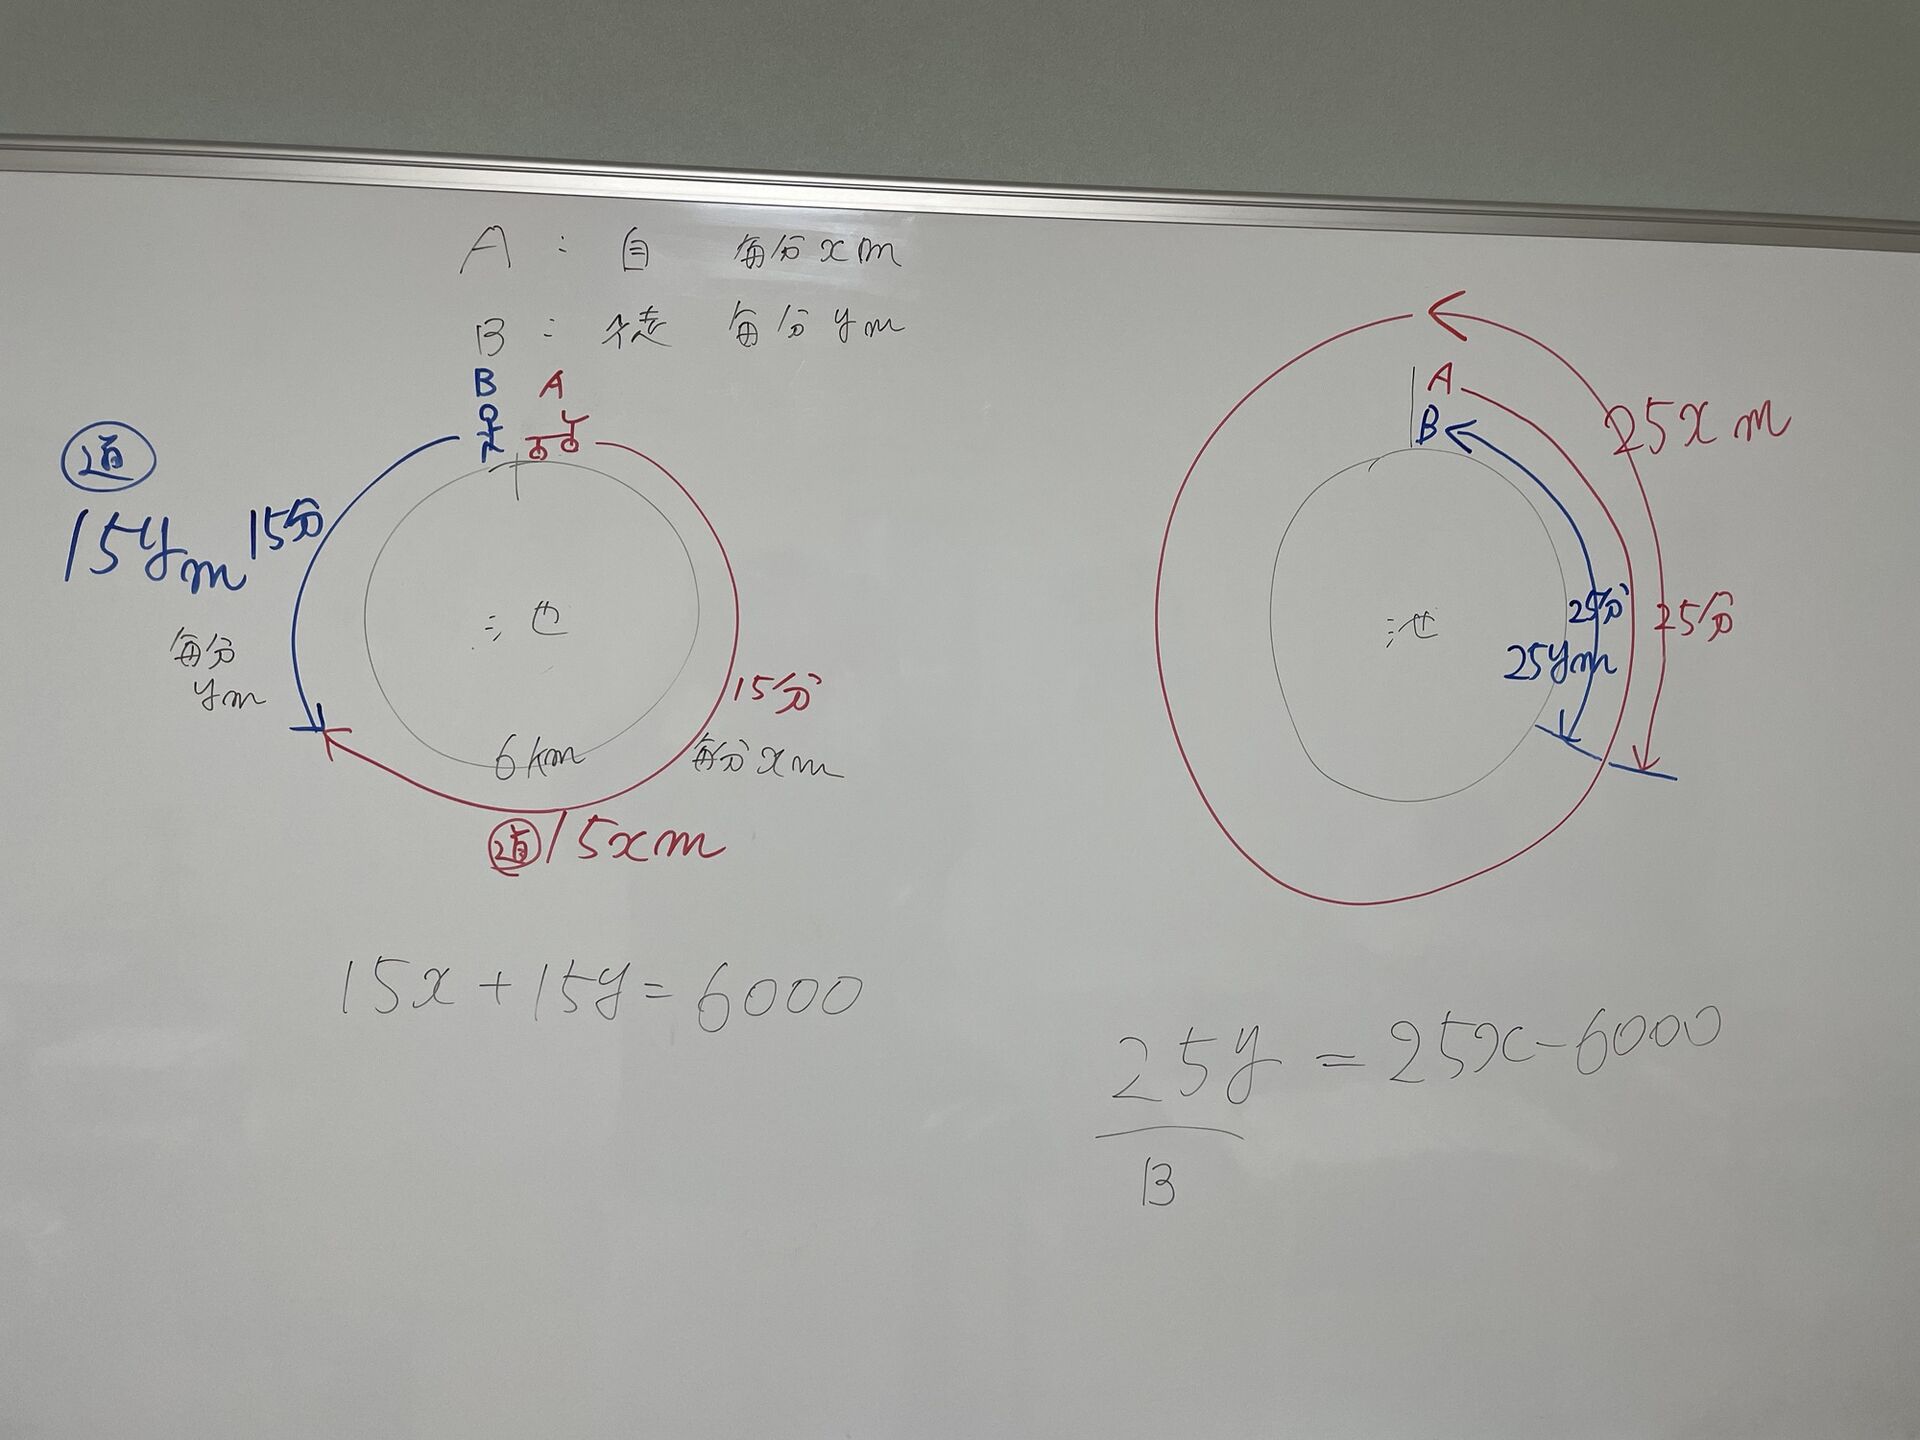 A : 自 毎分xm
B : 徒 毎分ym
B A
道
15ym
15分
毎分
ym
池
6km
15分
毎分xm
道 15xm
15x+15y=6000
A
B
25xm
池
25分
25ym
25分
25y=25x-6000
B